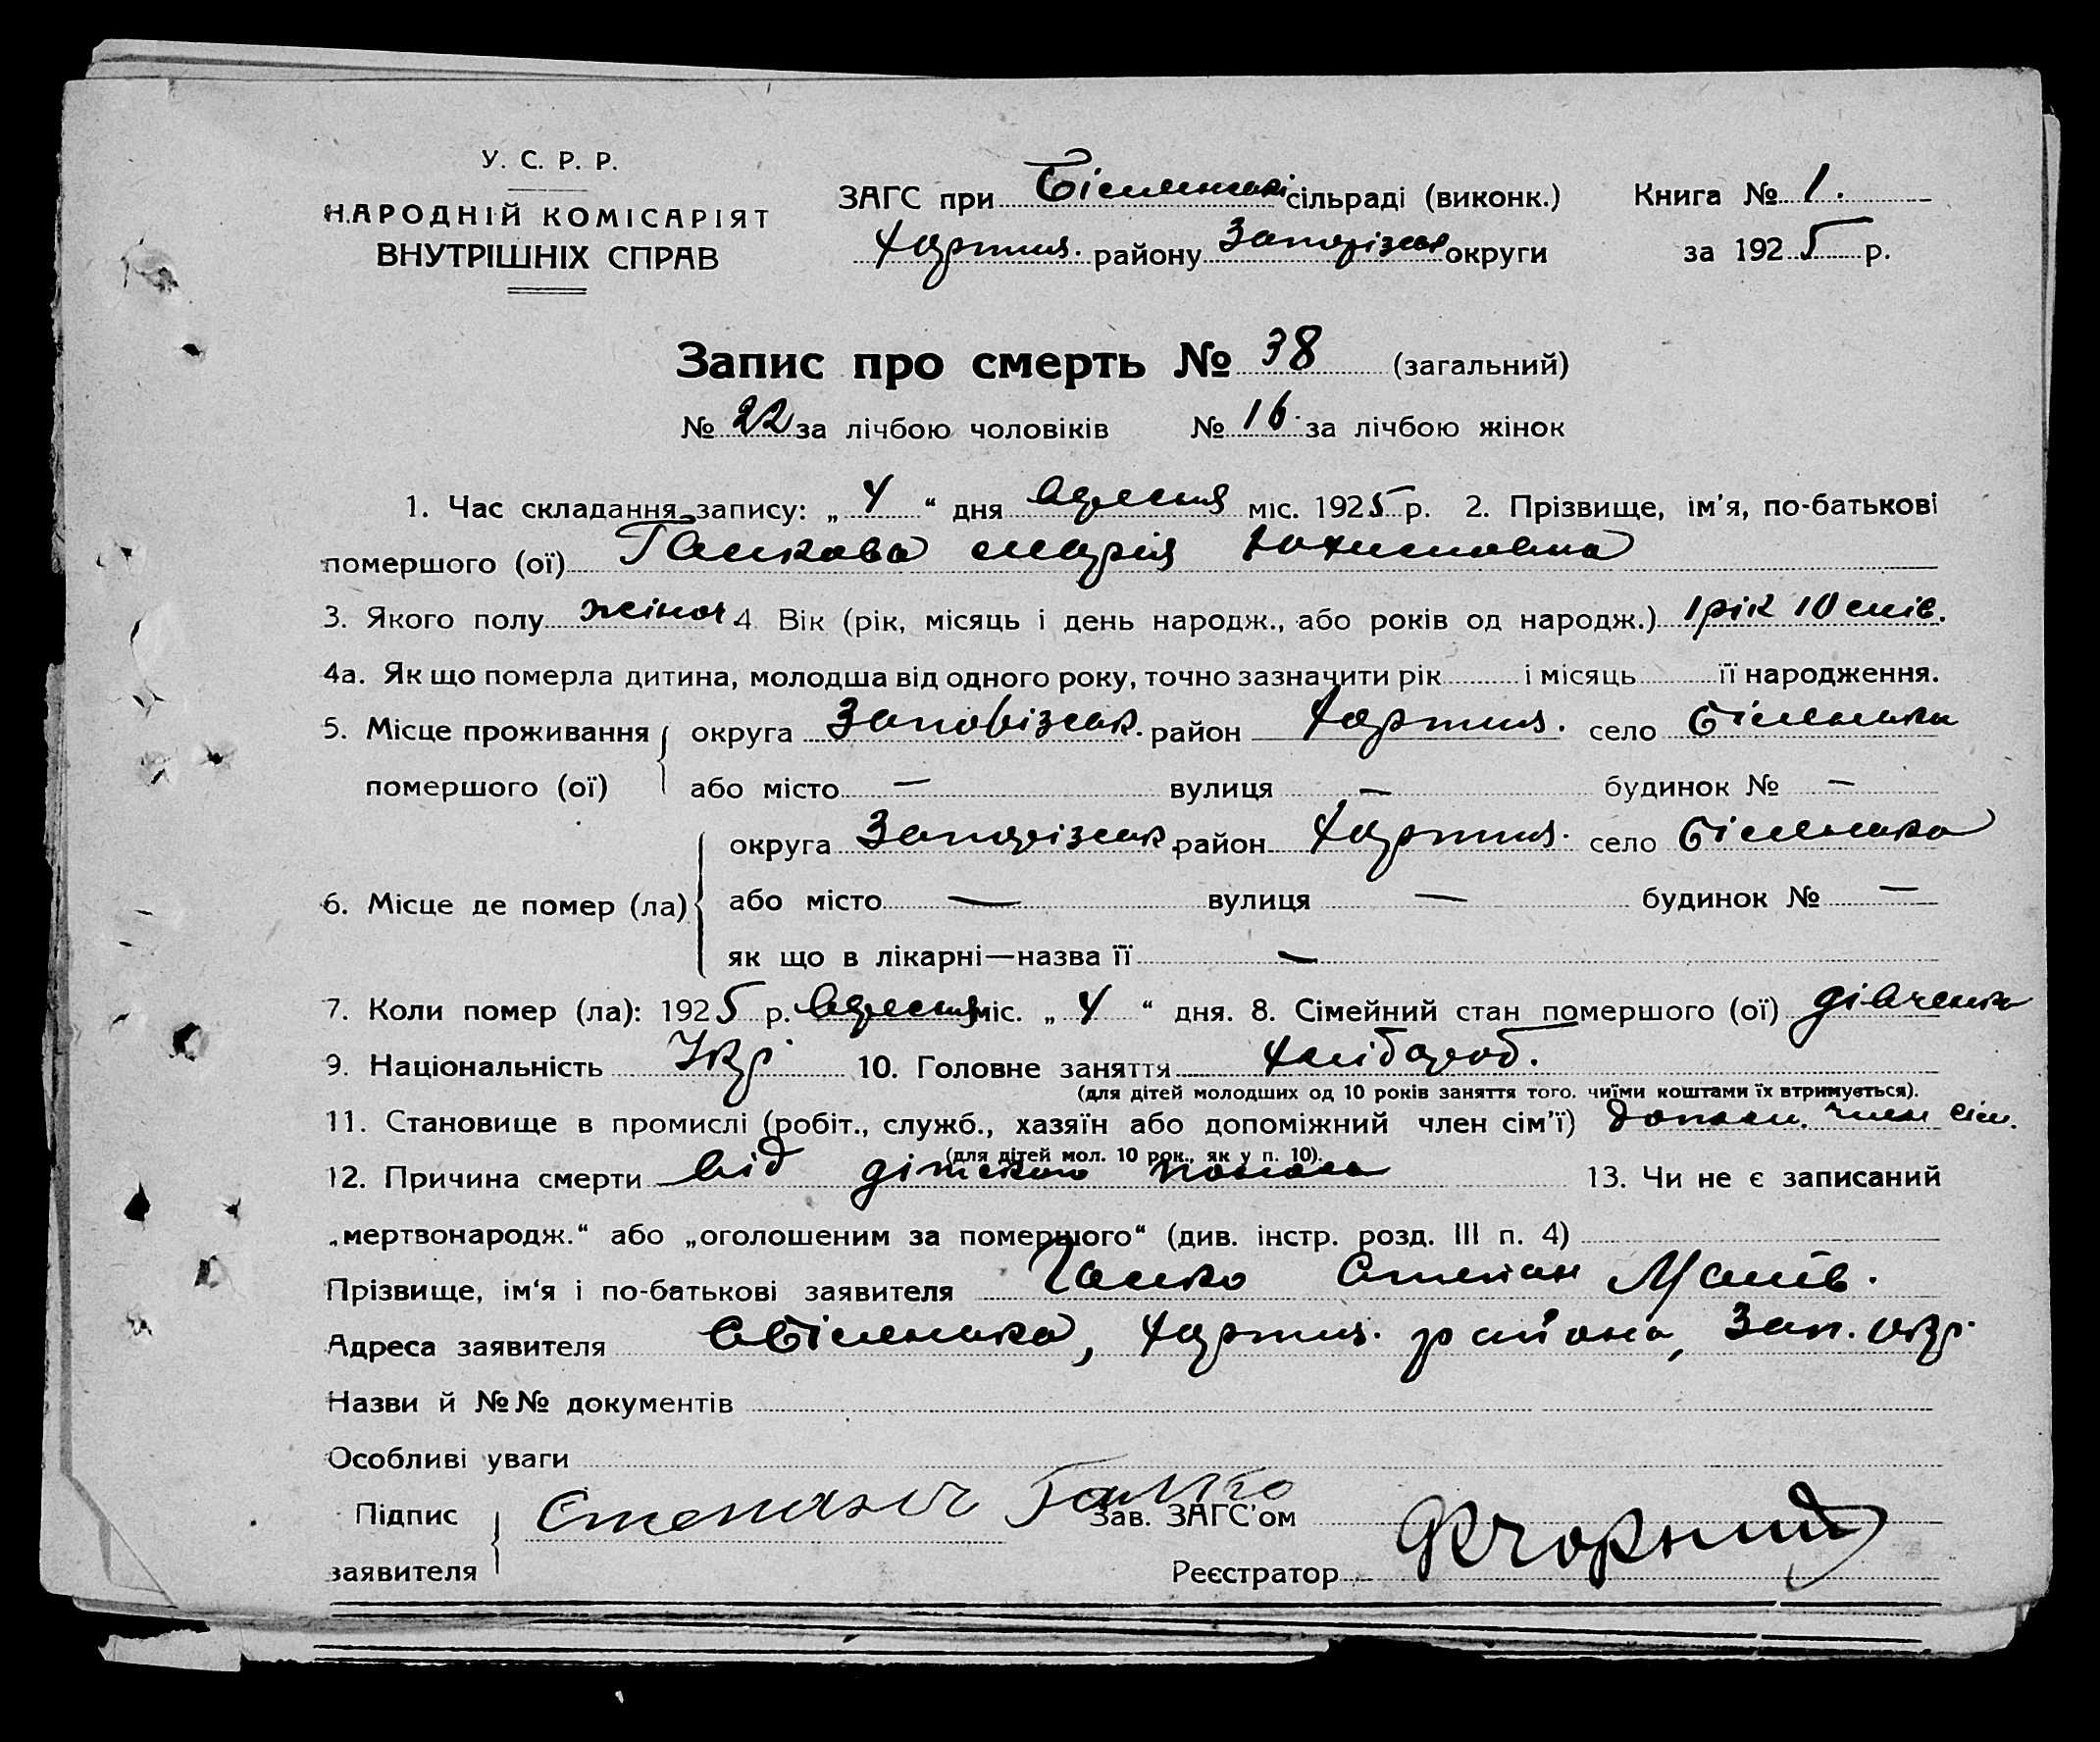 У. С. Р. Р.
НАРОДНІЙ КОМІСАРІЯТ
ВНУТРІШНІХ СПРАВ
ЗАГС при Біленькі сільраді (виконк.)
Хортиц. району Запорізьк округи
Книга № 1.
за 1925 р.
Запис про смерть № 38 (загальний)
№ 22 за лічбою чоловіків № 16 за лічбою жінок
1. Час складання запису: „ 4 “ дня вересня міс. 1925 р. 2. Прізвище, ім'я, по-батькові
помершого (ої) Марія
3. Якого полу жіноч 4 Вік (рік, місяць і день народж., або років од народж.) 1 рік 10 міс.
4а. Як що померла дитина, молодша від одного року, точно зазначити рік і місяць її народження.
5. Місце проживання округа Запорізьк. район Хортиц. село Біленька
помершого (ої) або місто — вулиця — будинок № —
округа Запорізьк район Хортиц. село Біленька
6. Місце де помер (ла) або місто — вулиця — будинок № —
як що в лікарні—назва її —
7. Коли помер (ла): 1925 р. вересня міс. „ 4 “ дня. 8. Сімейний стан помершого (ої) дівченка
9. Національність Укр 10. Головне заняття хлібороб.
(для дітей молодших од 10 років заняття того. чиїми коштами їх втримується).
11. Становище в промислі (робіт., служб., хазяїн або допоміжний член сім'ї) допом. член сім.
(для дітей мол. 10 рок., як у п. 10).
12. Причина смерти від 13. Чи не є записаний
„мертвонародж.“ або „оголошеним за помершого“ (див. інстр. розд. III п. 4)
Прізвище, ім'я і по-батькові заявителя Галко Степан
Адреса заявителя с Біленька, Хортиц. району, Зап. окр.
Назви й №№ документів
Особливі уваги
Підпис Галко Зав. ЗАГС'ом
заявителя Реєстратор Чорний